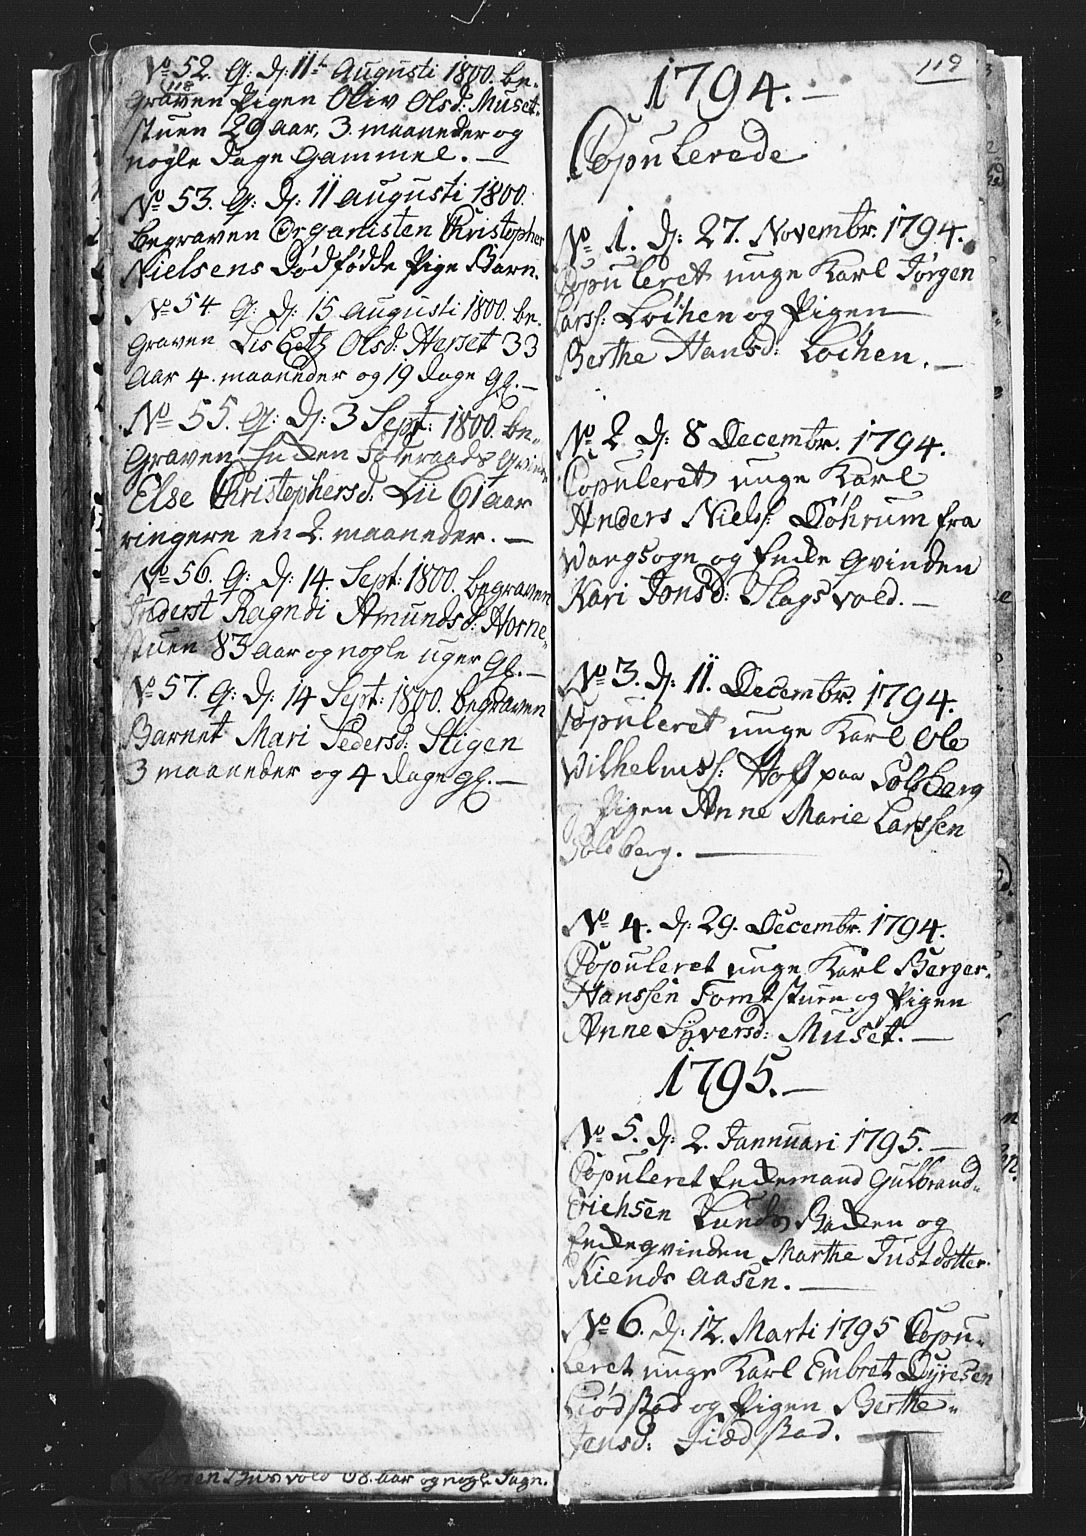 No 52. G: d: 11t Augusti 1800. be-
118
graven Pigen Oliv Olsd: Muset-
stuen 29 aar, 3. maaneder og
nogle dage gammel. —
No 53. G: d: 11 augusti 1800.
begraven Organisten Christopher
Nielsens dødfødde Pige Barn.
No 54 G: d: 15 augusti 1800. be-
graven Lisbeth Olsd: Herset 33
aar 4. maaneder og 19 dage gl. —
No 55. G: d: 3 Sept: 1800. be-
graven Enken Føderaads Qvinde
Else Christophersd: Lii 61 aar
ringere en 2. maaneder. —
No 56. G: d: 14. Sept: 1800. begraven
Inderst Ragndi Amundsd: Horne-
stuen 83 aar og nogle uger gl. —
No 57. G: d: 14 Sept: 1800. begraven
Barnet Mari Pedersd: Stigen
3 maaneder og 4 dage gl. —
aar og nogle Dagn.
119
1794. —
Copulerede
No 1. d: 27. Novembr. 1794.
Copuleret unge Karl Jørgen
Larss: Løchen og Pigen
Berthe Hansd: Løchen. —
No 2. d: 8 Decembr. 1794.
Copuleret unge Karl
Anders Niels: Døhrum fra
Wangsogn og Enke Qvinden
Kari Jonsd: Slagsvold. —
No 3. d: 11. Decembr. 1794.
Copuleret unge Karl Ole
Wilhelmss: Hoff paa Solberg
og Pigen Anne Marie Larssen
Solberg. —
No 4. d: 29. Decembr. 1794.
Copuleret unge Karl Berger
Hanssen Tomtstuen og Pigen
Anne Syversd: Muset. —
1795. —
No 5. d: 2. Jannuari 1795. —
Copuleret Enkemand Gulbrand
Erichsen Lunds Bakken og
Enkeqvinden Marthe Justdotter
Kiends aasen. —
No 6. d: 12. Marti 1795 Copu-
leret unge Karl Embret Dyresen
Fiødstad og Pigen Berthe
Jensd: Fiødstad. —